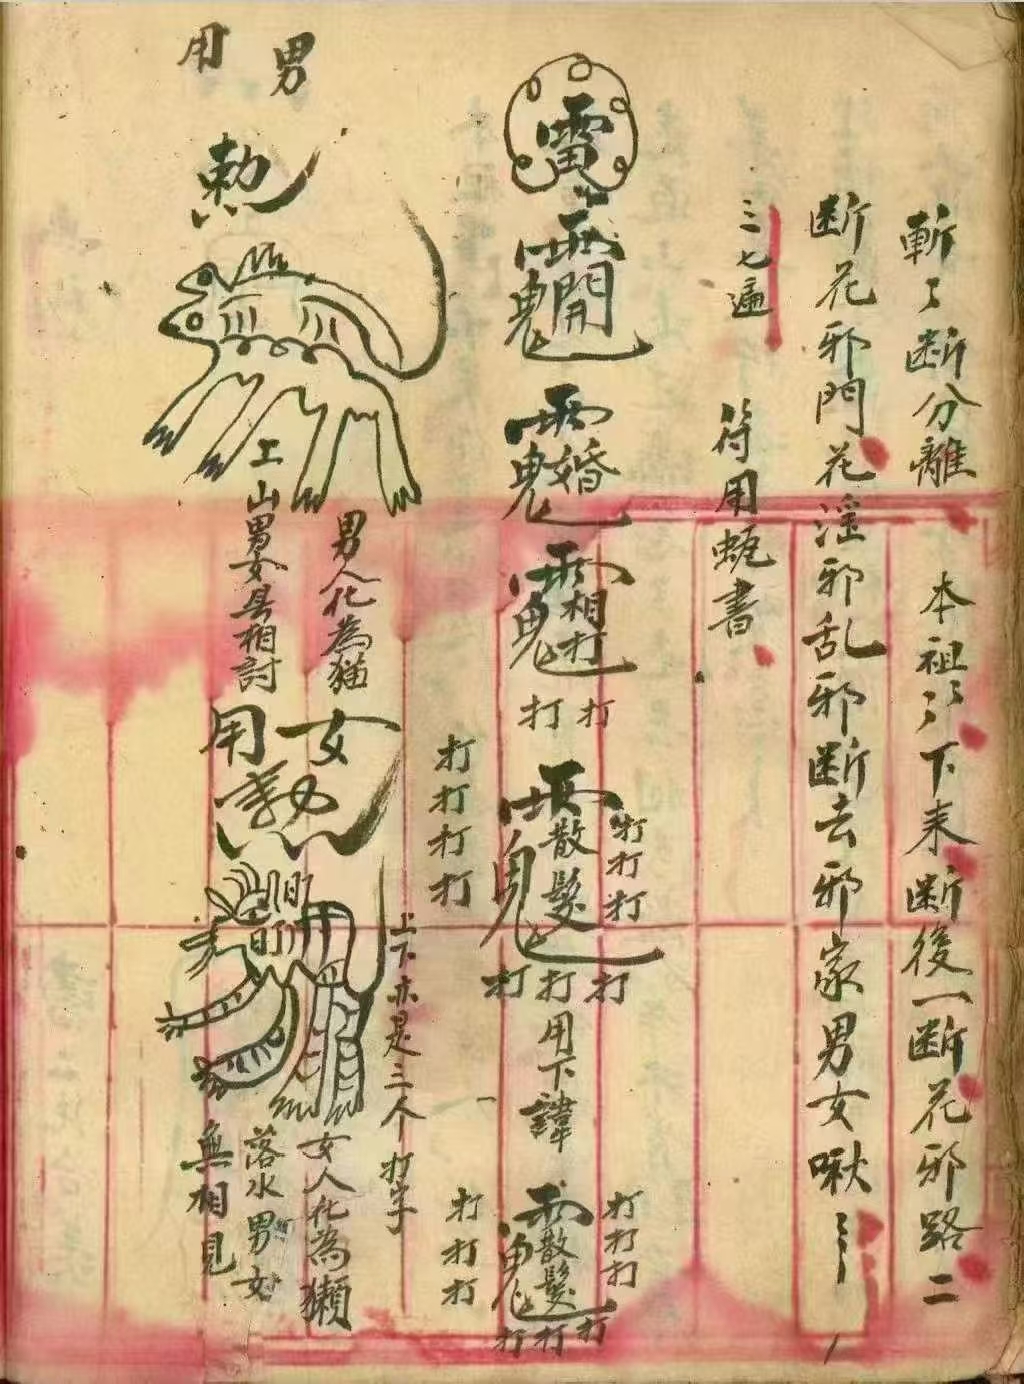 斬〻断分離 本祖〻〻下来断後一断花邪路二
断花邪門花淫邪乱邪断去邪家男女啾〻〻
三七遍 符用蚯書
雷
開 鬼
婚 鬼
相打 鬼
打打
散髮 鬼
打打打
打打打打
打打打
用下諱
散髮 鬼
打打打
打打打
打打打
上下亦是三个打字
男用
勅
男人化為猫
上山男女具相討
女用
勅
女人化為獺
落水男女
無相見